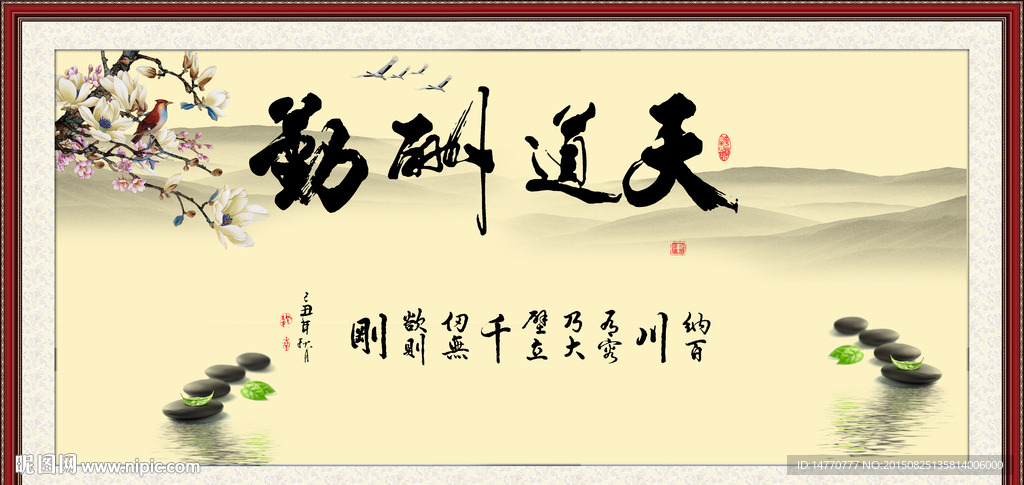 天道酬勤
納百川有容乃大壁立千仞無欲則剛
己丑年秋月
昵图网 www.nipic.com
ID:14770777 NO:20150825135814006000